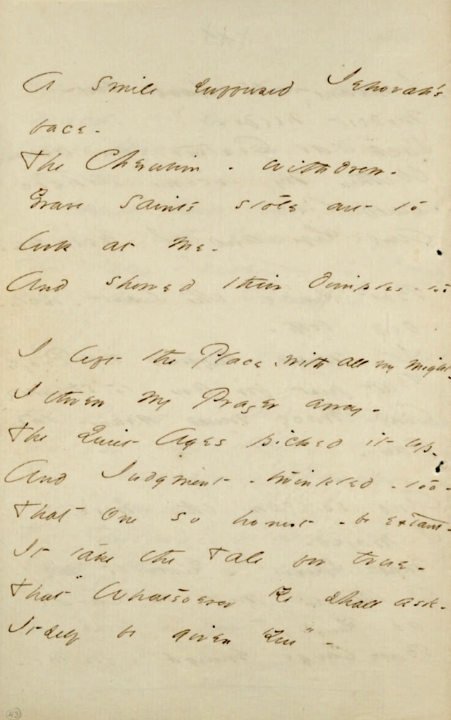 A Smile suffused Jehovah's
face -
The Cherubim - withdrew -
Grave Saints stole out to
look at me -
And showed their dimples - too -
I left the Place, with all my might
I threw My Prayer away -
The Quiet Ages picked it up -
And Judgment - twinkled - too -
That one so honest - be extant -
It take the Tale for true -
That "Whatsoever Ye shall ask -
Itself be given You" -